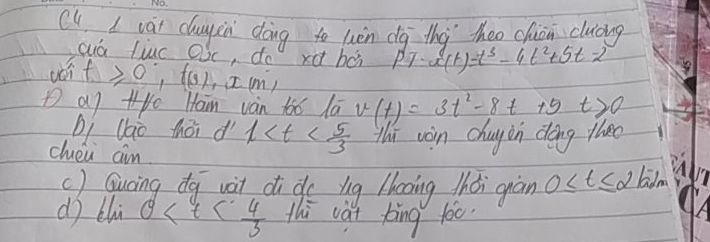 No.
C4 1 vật chuyển động trên đg thg theo chiều dương
của trục Ox, đc xđ bởi PT x(t)=t³ - 4t²+5t-2
với t ≥ 0, t(s), x(m)
a) Hàm vận tốc là v(t) = 3t²-8t +5 t>0
b) Vào thời đ' 1<t<5/3 thì vận chuyển động theo
chiều âm
c) Quãng đg vật đi đc khoảng thời gian 0≤t≤2 là 2m
d) khi 0<t<4/3 thì vật tăng tốc.